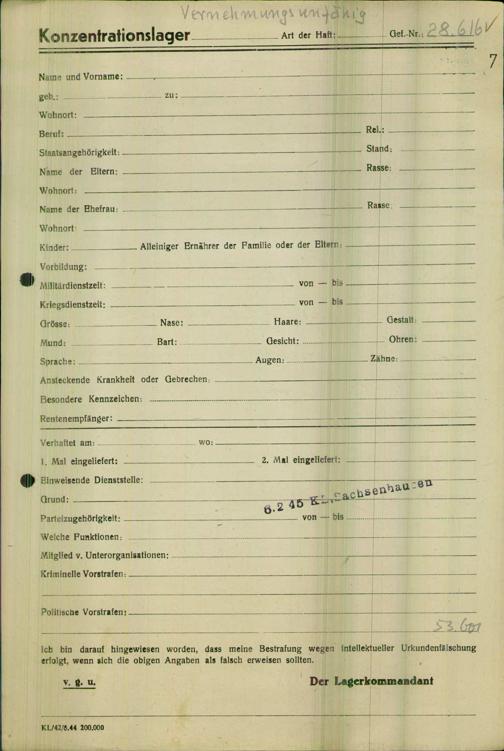 Vernehmungsunfähig
Konzentrationslager Art der Haft: Gef.-Nr.: 28.616
7
Name und Vorname:
geb.: zu:
Wohnort:
Beruf: Rel.:
Staatsangehörigkeit: Stand:
Name der Eltern: Rasse:
Wohnort:
Name der Ehefrau: Rasse:
Wohnort:
Kinder: Alleiniger Ernährer der Familie oder der Eltern:
Vorbildung:
Militärdienstzeit: von — bis
Kriegsdienstzeit: von — bis
Grösse: Nase: Haare: Gestalt:
Mund: Bart: Gesicht: Ohren:
Sprache: Augen: Zähne:
Ansteckende Krankheit oder Gebrechen:
Besondere Kennzeichen:
Rentenempfänger:
Verhaftet am: wo:
1. Mal eingeliefert: 2. Mal eingeliefert:
Einweisende Dienststelle:
Grund: 6.2 45 KL.Sachsenhausen
Parteizugehörigkeit: von — bis
Welche Funktionen:
Mitglied v. Unterorganisationen:
Kriminelle Vorstrafen:
Politische Vorstrafen:
Ich bin darauf hingewiesen worden, dass meine Bestrafung wegen intellektueller Urkundenfälschung
erfolgt, wenn sich die obigen Angaben als falsch erweisen sollten.
v. g. u. Der Lagerkommandant
KL/42/5.44 200.000